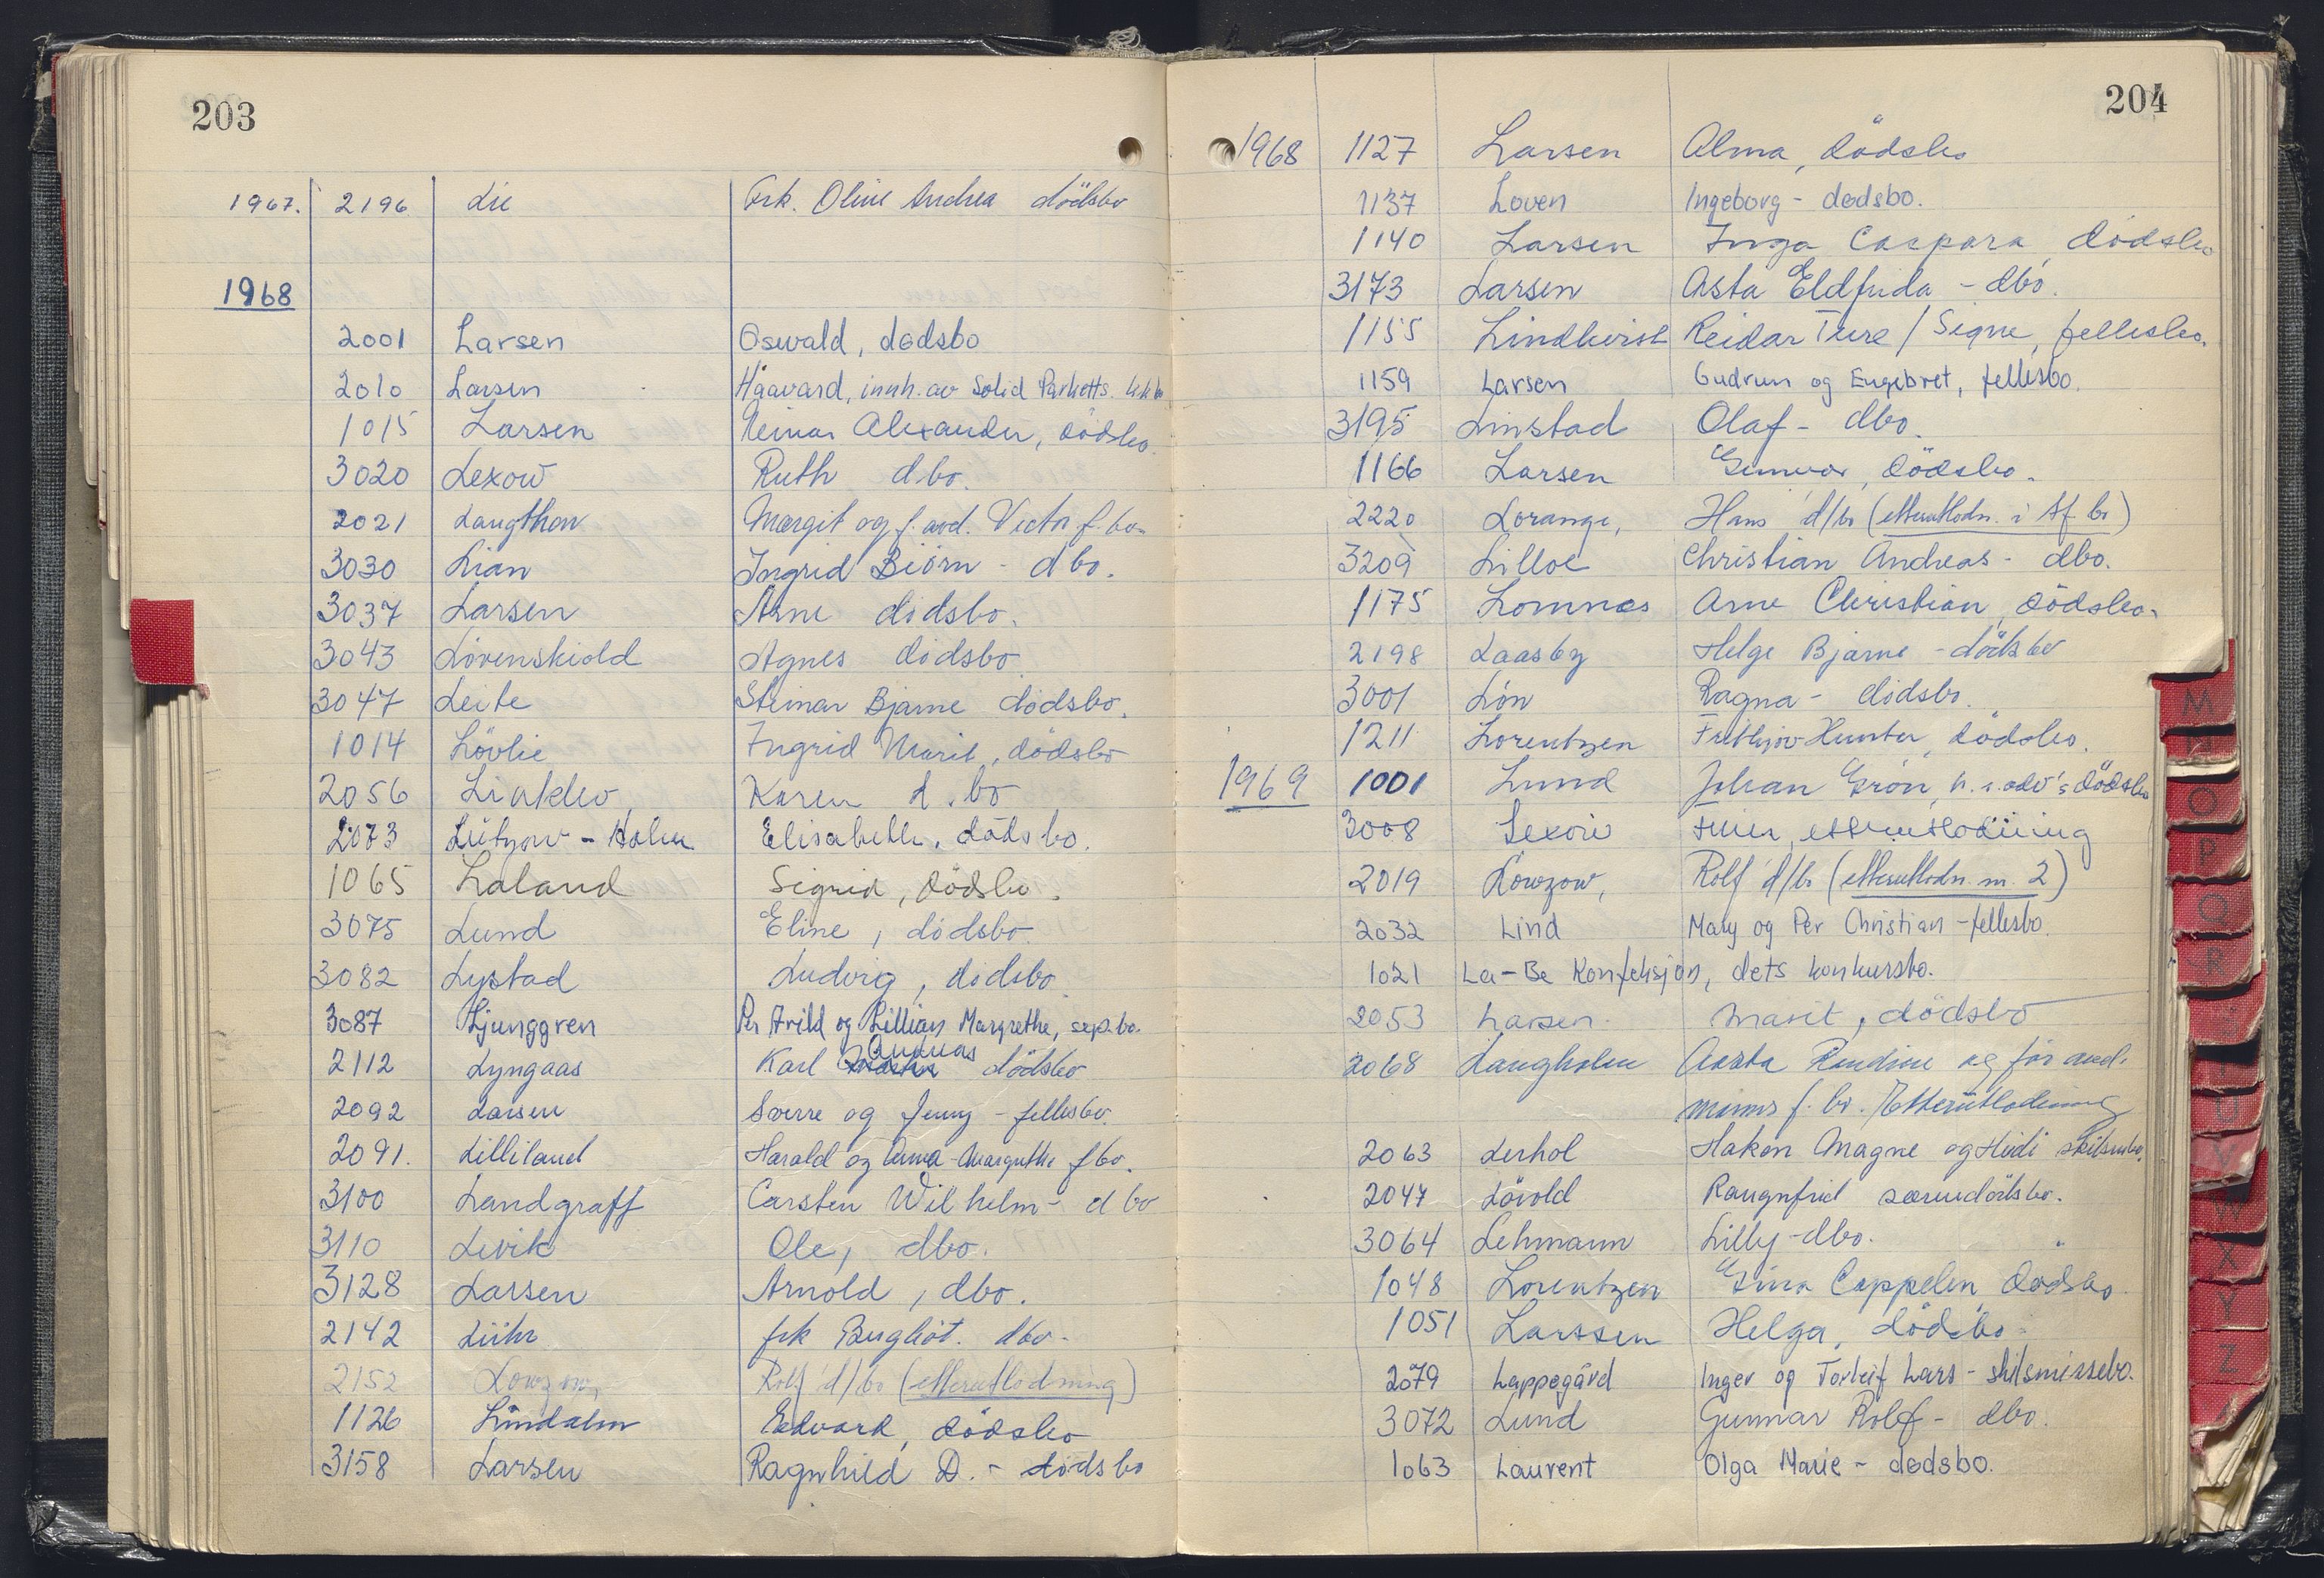 203
1967. 2196 Lie Frk. Oline Andrea dödsbo
1968
2001 Larsen Oswald, dødsbo
2010 Larsen Håavard, innh. av Solid Parketts.
1015 Larsen Reinar Alexander, dödsbo.
3020 Lexow Ruth dbo.
2021 Langthon Margit og f. avd. Victor f. bo.
3030 Lian Ingrid Biörn - dbo.
3037 Larsen Arne dödsbo.
3043 Lövenskiold Agnes dödsbo
3047 Leite Steinar Bjarne dödsbo.
1014 Lövlie Ingrid Marit, dödsbo
2056 Karen d. bo
2073 Lützow-Holm Elisabeth, dödsbo.
1065 Laland Sigrid, dödsbo.
3075 Lund Eline, dödsbo.
3082 Lystad Ludvig, dödsbo.
3087 Ljunggren Per Arild og Lillian Margrethe, sep.bo.
2112 Lyngaas Karl Andreas dödsbo
2092 Larsen Sverre og Jenny - fellesbo.
2091. Lilliland Harald og Anna Margrethe f bo.
3100 Landgraff Carsten Wilhelm - d bo
3110 Levik Ole, dbo.
3128 Larsen Arnold, dbo.
2142 Lühr frk Bergliot. dbo.
2152 Lowzow, Rolf d/bo (etterutlodning)
1126 Lindalm Edvard, dödsbo
3158 Larsen Ragnhild D. - dödsbo
204
1968 1127 Larsen Alma, dödsbo
1137 Loven Ingeborg - dødsbo.
1140 Larsen Inga Caspara, dödsbo
3173 Larsen Asta Eldfrida - dbo.
1155 Lindkvist Reidar Ture / Signe, fellesbo.
1159 Larsen Gudrun og Engebret, fellesbo.
3195 Linstad Olaf - dbo.
1166 Larsen Gunvor, dödsbo.
2220 Lorange, Hans d/bo (etterutlodn. i bo)
3209 Lilloe Christian Andreas - dbo.
1175 Lomnæs Arne Christian, dödsbo.
2198 Laasby Helge Bjarne - dödsbo
3001 Lön Ragna - dödsbo.
1211 Lorentzen Frithjov Hunter, dödsbo.
1969 1001 Lund Johan Grön, h.r.adv's dödsbo
3008 Lexow etterutlodning
2019 Lowzow, Rolf d/bo (etterutlodn. nr. 2)
2032 Lind Mary og Per Christian - fellesbo.
1021 La-Be Konfeksjon, dets konkursbo.
2053 Larsen Marit, dödsbo
2068 Langholm Aasta og för avd.
manns f. bo. /Etterutlodning
2063 Lerhol Håkon Magne og Heidi skilsm.bo.
2047 Lövold Raugnfrid særendödsbo.
3064 Lehmann Lilly - dbo.
1048 Lorentzen Gina Cappelen, dödsbo
1051 Larssen Helga, dödsbo.
2079 Lappegård Inger og Torleif Lars - skilsmissebo.
3072 Lund Gunnar Rolf - dbo.
1063 Laurent Olga Marie - dødsbo.
M
O
P
Q
R
U
V
W
X
Y
Z